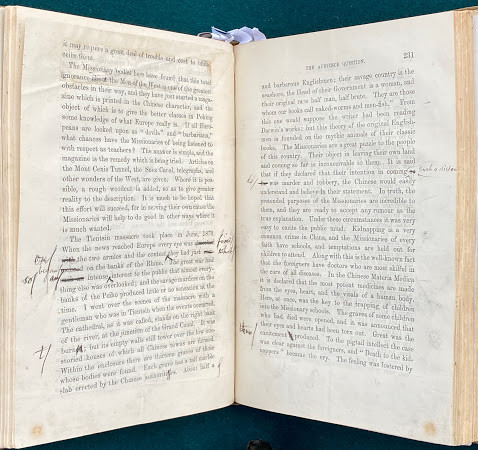 it may to pave a great deal of trouble and cost to enlighten them.
The Missionary bodies here have found that this total
ignorance about the Men of the West is one of the greatest
obstacles in their way, and they have just started a maga-
zine which is printed in the Chinese character, and the
object of which is to give the better classes in Peking
some knowledge of what Europe really is. If all Euro-
peans are looked upon as "devils" and "barbarians,"
what chances have the Missionaries of being listened to
with respect as teachers? The answer is simple, and the
magazine is the remedy which is being tried. Articles on
the Mont Cenis Tunnel, the Suez Canal, telegraphs, and
other wonders of the West, are given. Where it is pos-
sible, a rough woodcut is added, so as to give greater
reality to the description. It is much to be hoped that
this effort will succeed, for in serving their own cause the
Missionaries will help to do good in other ways where it
is much wanted.
The Tientsin massacre took place in June, 1870.
When the news reached Europe every eye was
the two armies and the contest they had just
on the banks of the Rhine. The great war
intense interest to the public that almost every-
thing else was overlooked; and the savage murders on the
banks of the Peiho produced little or no sensation at the
time. I went over the scenes of the massacre with a
gentleman who was in Tientsin when the events occurred.
The cathedral, as it was called, stands on the right bank
of the river, at the junction of the Grand Canal. It was
burnt; but its empty walls still tower over the low one-
storied houses of which all Chinese towns are formed.
Within the enclosure there are thirteen graves of those
whose bodies were found. Each grave has a tall marble
slab erected by the Chinese authorities. About half a
THE AUDIENCE QUESTION. 231
and barbarous Englishmen; their savage country is the
the Head of their Government is a woman, and
their original race half man, half brute. They are those
whom our books call naked-worms and men-fish." From
this one would suppose the writer had been reading
Darwin's works; but this theory of the original English-
men is founded on the mythic animals of their classic
books. The Missionaries are a great puzzle to the people
of this country. Their object in leaving their own land
and coming so far is inconceivable to them. It is said
that if they declared that their intention in coming
was murder and robbery, the Chinese would easily
understand and believe in their statement. In truth, the
pretended purposes of the Missionaries are incredible to
them, and they are ready to accept any rumour as the
true explanation. Under these circumstances it was very
easy to excite the public mind. Kidnapping is a very
common crime in China, and the Missionaries of every
faith have schools, and temptations are held out for
children to attend. Along with this is the well-known fact
that the foreigners have doctors who are most skilful in
the cure of all diseases. In the Chinese Materia Medica
it is declared that the most potent medicines are made
from the eyes, heart, and the vitals of a human body.
Here, at once, was the key to the trapping of children
into the Missionary schools. The graves of some children
who had died were opened, and it was announced that
their eyes and hearts had been torn out. Great was the
excitement produced. To the pigtail intellect the case
was clear against the foreigners, and "Death to the kid-
nappers" became the cry. The feeling was fostered by